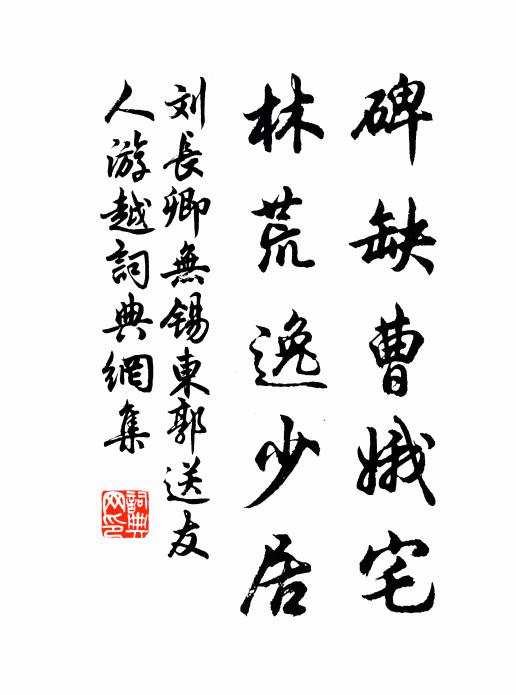 碑缺曹娥宅
林荒逸少居
刘長卿無錫東郭送友
人游越詞典網集
詞典網印